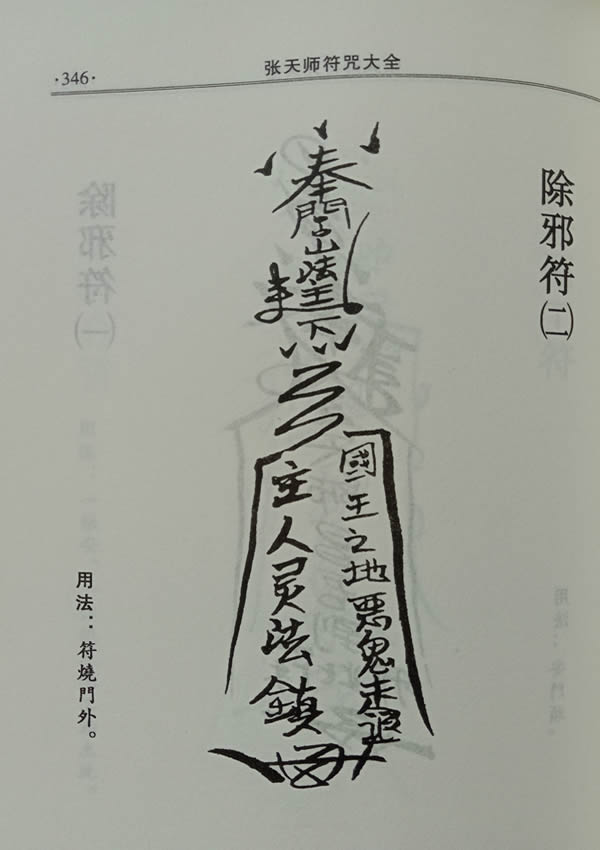 ·346·
张天师符咒大全
除邪符㈡
奉閭山法主
下
國王之地惡鬼走退
主人灵法鎮
用法：符燒門外。